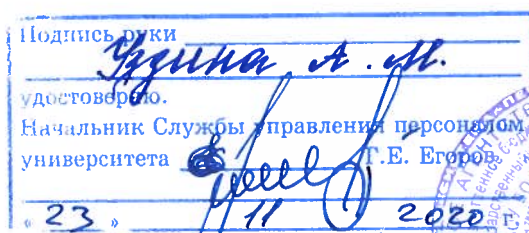 Подпись руки
Уздина А. М.
удостоверяю.
Начальник Службы управления персоналом
университета Г.Е. Егоров
« 23 » 11 2020 г.